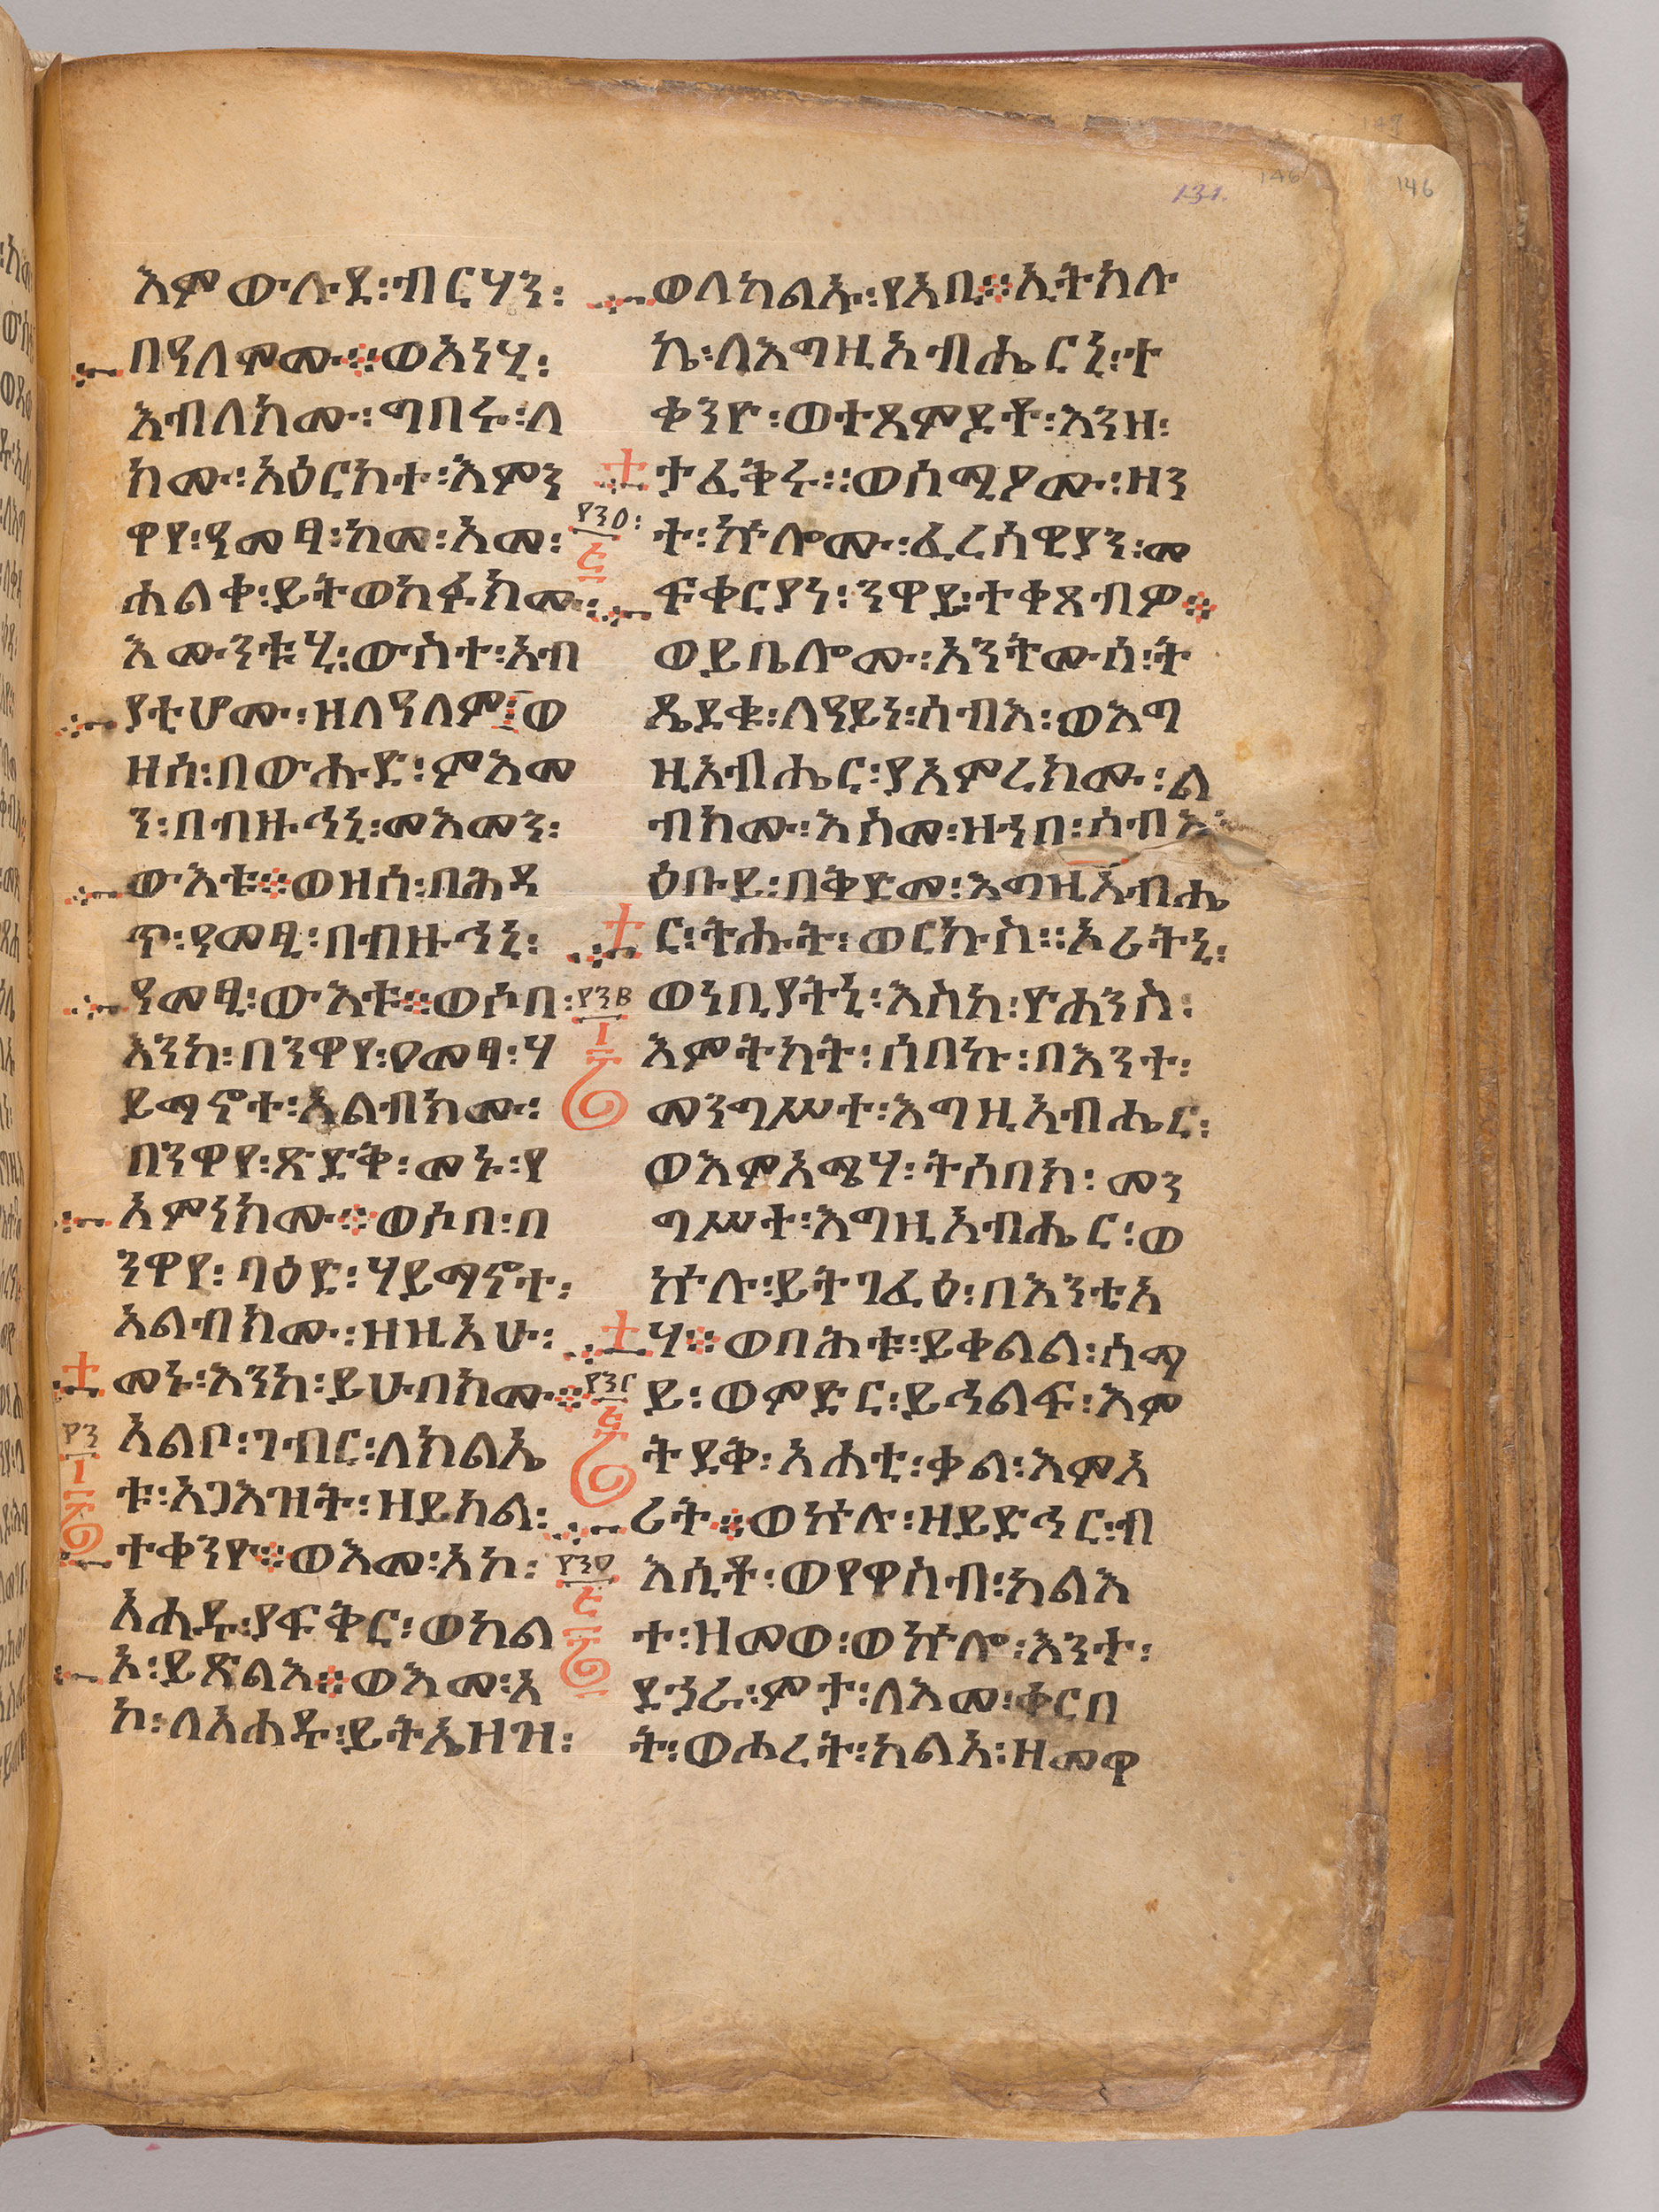 131. 146 146
147
እምውሉደ፡ብርሃን፡
በዓለሞሙ፨ወአነሂ፡
እብለከሙ፡ግበሩ፡ለ
ከሙ፡አዕርክተ፡እምን
ዋየ፡ዓመፃ፡ከመ፡አመ፡
ሐልቀ፡ይትወከፉክሙ፡
እሙንቱሂ፡ውስተ፡አብ
ያቲሆሙ፡ዘለዓለም፤ወ
ዘሰ፡በውሑድ፡ምእመ
ን፡በብዙኅኒ፡መእመን፡
ውእቱ፨ወዘሰ፡በሕዳ
ጥ፡ዓመፂ፡በብዙኅኒ፡
ዓመፂ፡ውእቱ፨ወሶበ፡
እንከ፡በንዋየ፡ዐመፃ፡ሃ
ይማኖተ፡አልብክሙ፡
በንዋየ፡ጽድቅ፡መኑ፡የ
አምነክሙ፨ወሶበ፡በ
ንዋየ፡ባዕድ፡ሃይማኖተ፡
አልብክሙ፡ዘዚአሁ፡
መኑ፡እንከ፡ይሁበክሙ፨
አልቦ፡ገብር፡ለክልኤ
ቱ፡አጋእዝት፡ዘይክል፡
ተቀንዮ፨ወእመ፡አኮ፡
አሐዱ፡ያፍቅር፡ወካል
አ፡ይጽልእ፨ወእመ፡አ
ኮ፡ለአሐዱ፡ይትኤዘዝ፡
ወለካልኡ፡የአቢ፨ኢትክሉ
ኬ፡ለእግዚአብሔርኒ፡ተ
ቀንዮ፡ወተጸምዶቶ፡እንዘ፡
ታፈቅሩ፡፡ወሰሚዖሙ፡ዘን
ተ፡ኵሎሙ፡ፈረሰዊያን፡መ
ፍቀርያነ፡ንዋይ፡ተቀጸብዎ፨
ወይቤሎሙ፡አንትሙሰ፡ት
ጼደቁ፡ለዓይነ፡ሰብእ፡ወእግ
ዚአብሔር፡ያአምረክሙ፡ል
ብክሙ፡እስመ፡ዝኀበ፡ሰብእ፡
ዕቡይ፡በቅድመ፡እግዚአብሔ
ር፡ትሑት፡ወርኩስ፡፡ኦሪትኒ፡
ወነቢያትኒ፡እስከ፡ዮሐንስ፡
እምትካት፡ሰበኩ፡በእንተ፡
መንግሥተ፡እግዚአብሔር፡
ወእምአሜሃ፡ትሰበክ፡መን
ግሥተ፡እግዚአብሔር፡ወ
ኵሉ፡ይትገፈዕ፡በእንቲአ
ሃ፨ወበሕቱ፡ይቀልል፡ሰማ
ይ፡ወምድር፡ይኅልፍ፡እም
ትደቅ፡አሐቲ፡ቃል፡እምኦ
ሪት፨ወኵሉ፡ዘይድኅር፡ብ
እሲቶ፡ወየዋስብ፡ካልእ
ተ፡ዘመወ፡ወኵሎ፡እንተ፡
ደኀራ፡ምታ፡ለእመ፡ቀርበ
ት፡ወሖረት፡ካልአ፡ዘመዋ